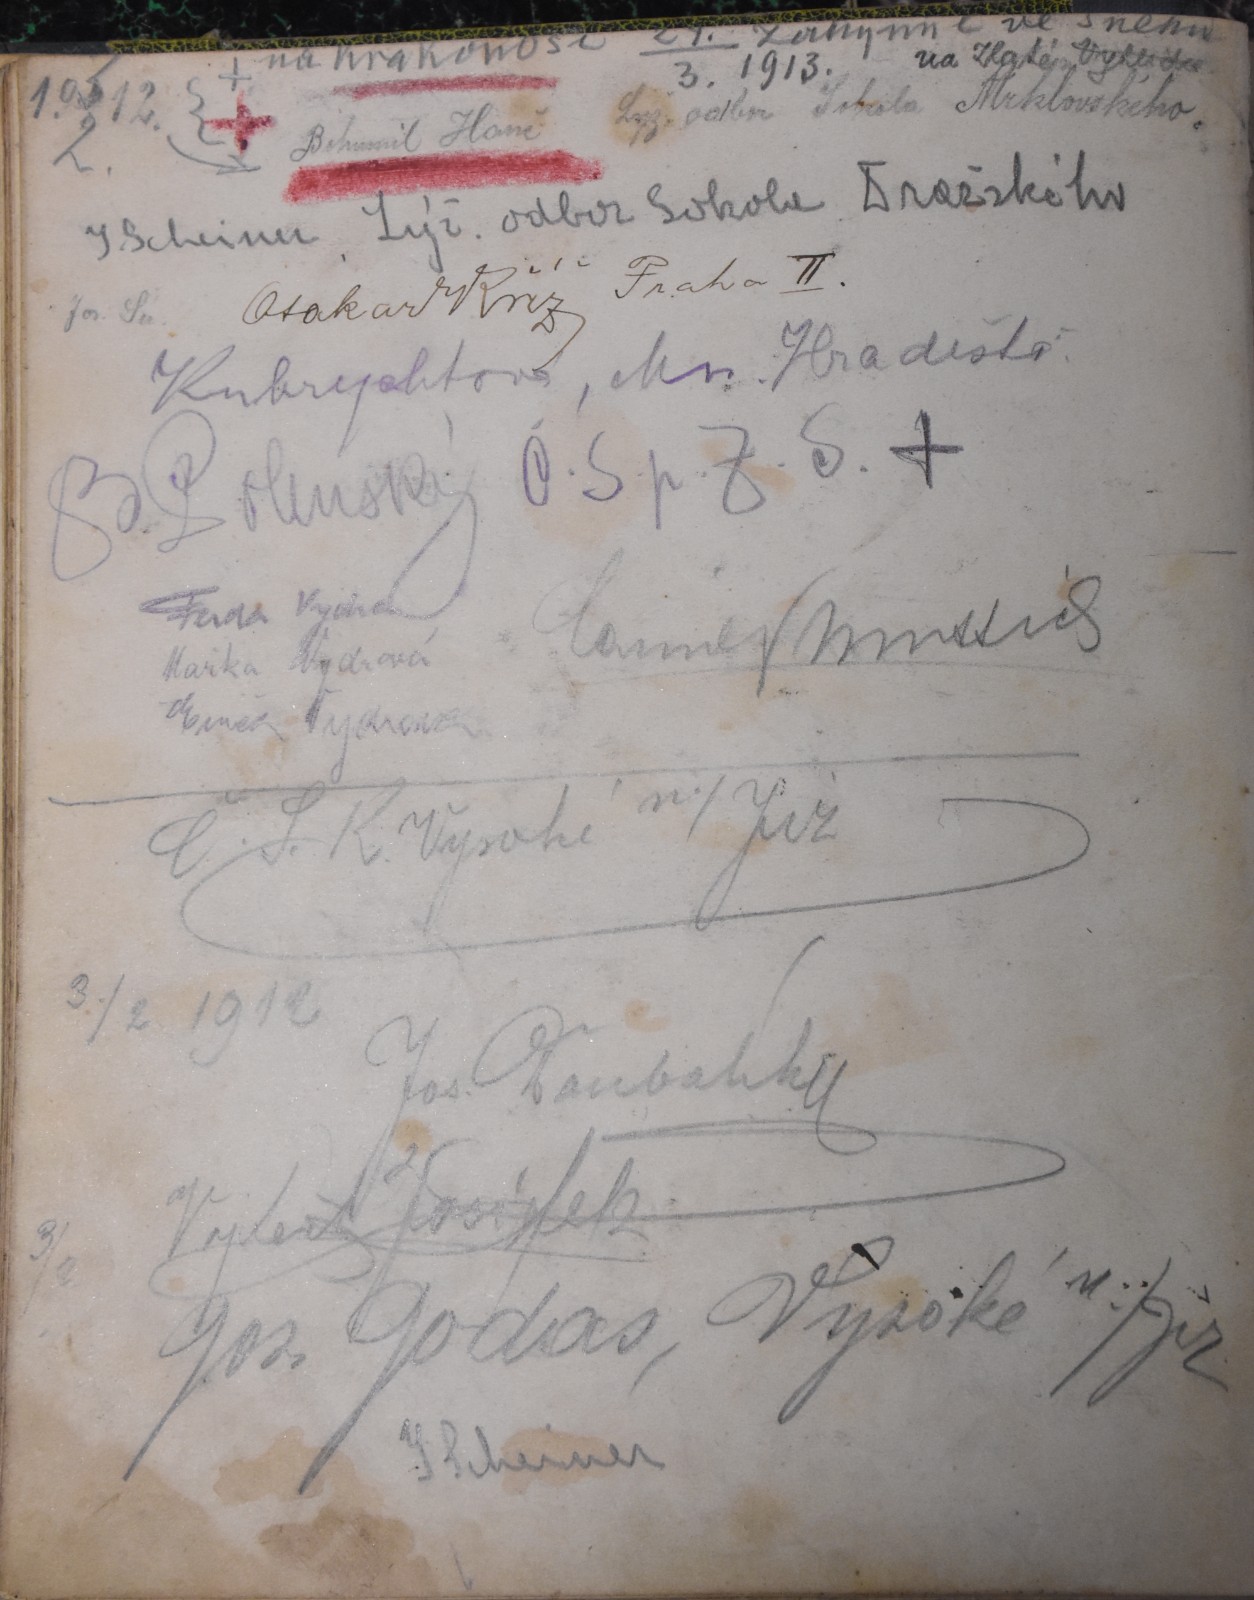 na Krakonoši 24. zahynul ve sněhu
3. 1913. na Zlatém
1912. + Bohumil Hanč Lyž. odbor Sokola Mrklovského.
2.
J Scheiner Lyž. odbor Sokola Pražského
Jos.
Otakar Kříž Praha II.
Kubrychtova, Mn. Hradiště
B. Polenský Č. S p. Z. S. +
Ferda Vydra
Mařka Vydrová
Vydrova
Č. S. K. Vysoké n/Jiz
3./2 1912
Jos. Doubalík
Josífek
3/2
Jos. Jodas, Vysoké n./Jiz
J Scheiner